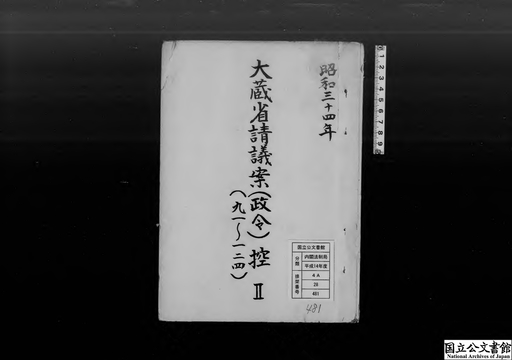 昭和三十四年
大蔵省請議案(政令)控 Ⅱ
(九一～一三四)
国立公文書館
分類
内閣法制局
平成14年度
排架番号
4A
28
481
481
1 2 3 4 5 6 7 8 9
国立公文書館
National Archives of Japan